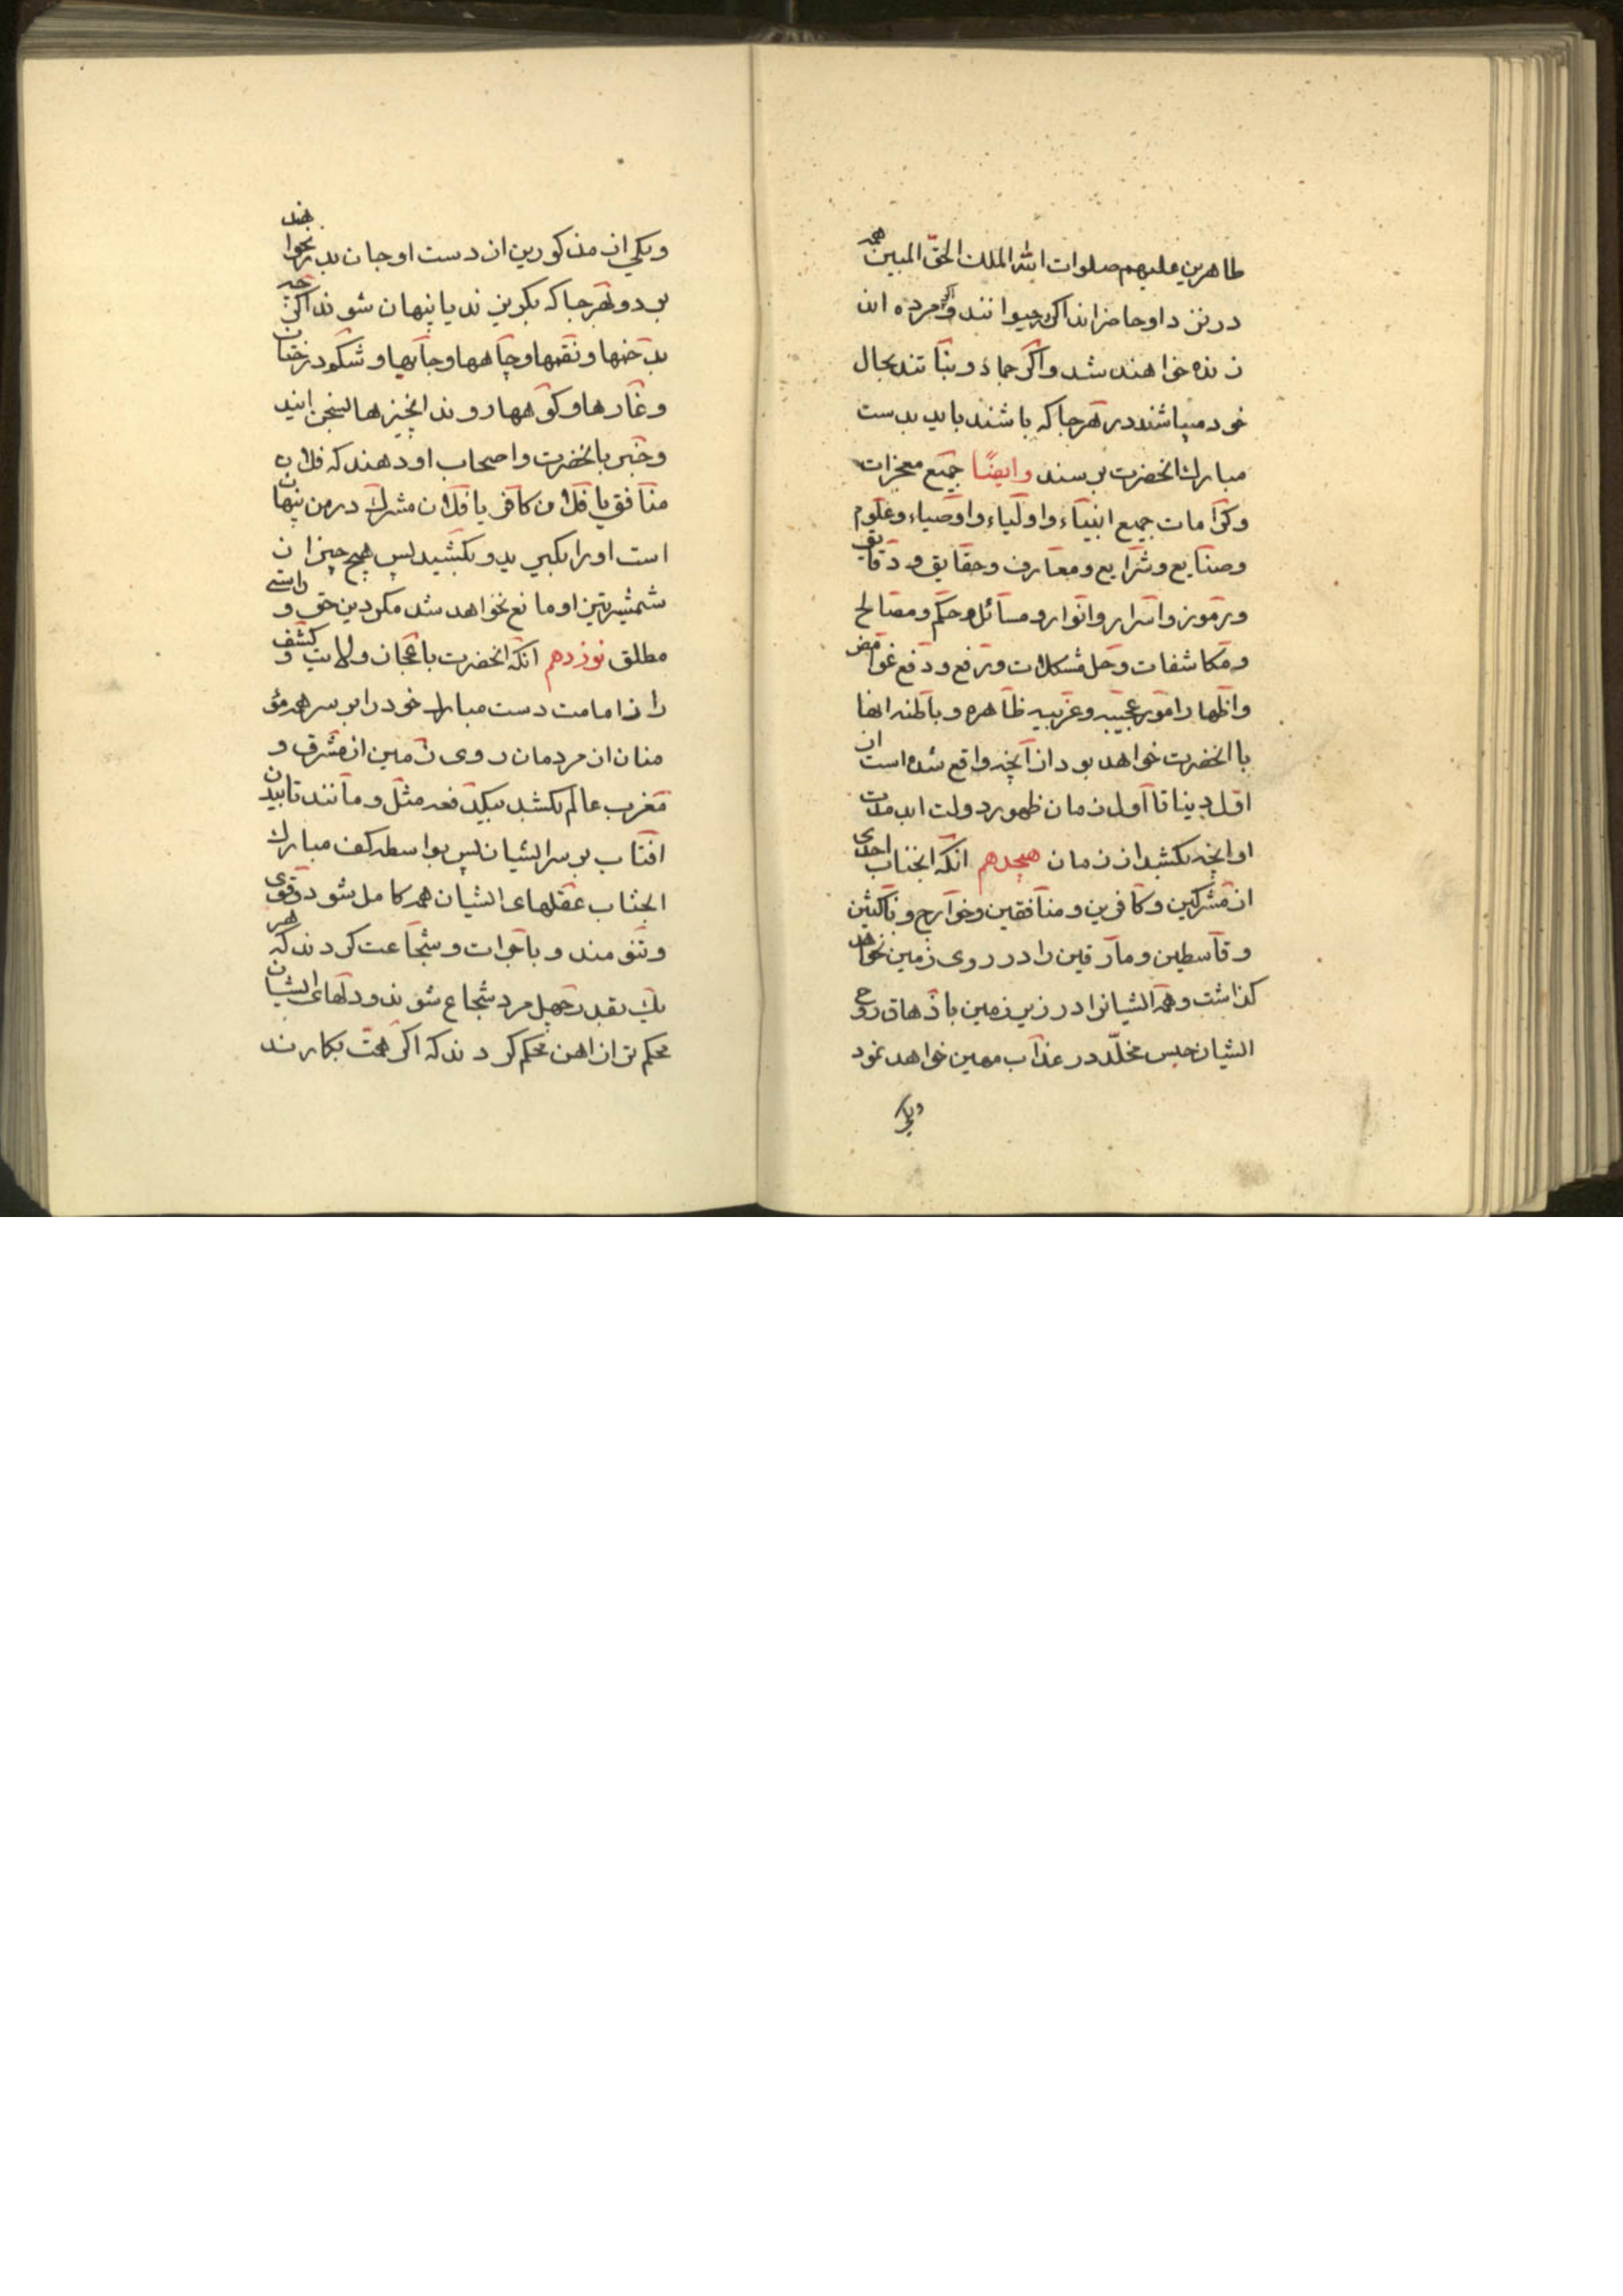 طاهرین علیهم صلوات الله الملک الحقّ المبین همه
در نزد او حاضراند اکر حیوانند و اکر مرده اند
زنده خواهند شد و اکر جماد و نباتند بحال
خود میباشند در هر جا که باشند باید بدست
مبارک انحضرت برسند وایضًا جمیع معجزات
وکرامات جمیع انبیاء واولیاء واوصیاء وعلوم
وصنایع وشرایع ومعارف وحقایق ودقایق
ورموز واسرار وانوار ومسائل وحکم ومصالح
ومکاشفات وحل مشکلات ورفع ودفع غوامض
واظهار امور عجیبه وغریبه ظاهره وباطنه انها
با انحضرت خواهد بود از آنچه واقع شده است از
اول دینا تا اول زمان ظهور دولت ابد مدت
او انچه بکشد از زمان هیجدهم انکه انجناب احدی
از مشرکین وکافرین ومنافقین وخوارج وناکثین
وقاسطین ومارقین را در روی زمین نخواهد
کذاشت وهمه ایشانرا در زیر زمین با ذهاق روح
ایشان حبس مخلّد در عذاب مهین خواهد نمود
ویکی
ویکی از مذکورین از دست او جان بدر نخواهند
بود وبهر جا که بکریزند یا پنهان شوند اکر چه
بدخنها ونقبها وچاهها وجابها وشکود رختان
وغارها وکوهها روند انچیزها بسخن ایند
وخبر بانحضرت واصحاب او دهند که فلان
منافق یا فلان کافر یا فلان مشرک در من پنهان
است او را بکیرید وبکشید پس هیچ چیز از
شمشیر تیز او مانع نخواهد شد مکر دین حق و راستی
مطلق نوزدهم انکه انحضرت باعجاز ولایت و کشف
راز امامت دست مبارک خود را بر سر همه مؤ
منان از مردمان روی زمین از مشرق و
مغرب عالم بکشد بیکدفعه مثل ومانند تابیدن
افتاب بر سر ایشان پس بواسطه کف مبارک
انجناب عقلهای ایشان همه کامل شود وقوی
وتنومند وباجرات وشجاعت کردند که هر
یک بقدر چهل مرد شجاع شوند ودلهای ایشان
محکم تر از اهن محکم کردند که اکر همت بکارند